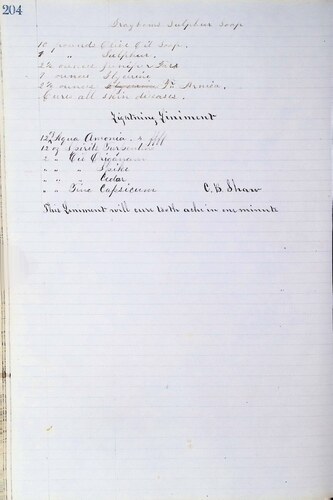 204
Sulphur Soap
10 pounds Olive Oil Soap.
" Sulphur.
2½ ounces Juniper Tar
ounce Glycerine
2½ ounces Fl Arnica.
Cures all skin deceases.
Lightning Liniment
Aqua Amonia.
12 oz Spirits Turpentine
2 " Oil Origanum
" " " Spike
" " " Cedar
" " Tinc Capsicum C. B. Shaw
This Liniment will cure tooth ache in one minute